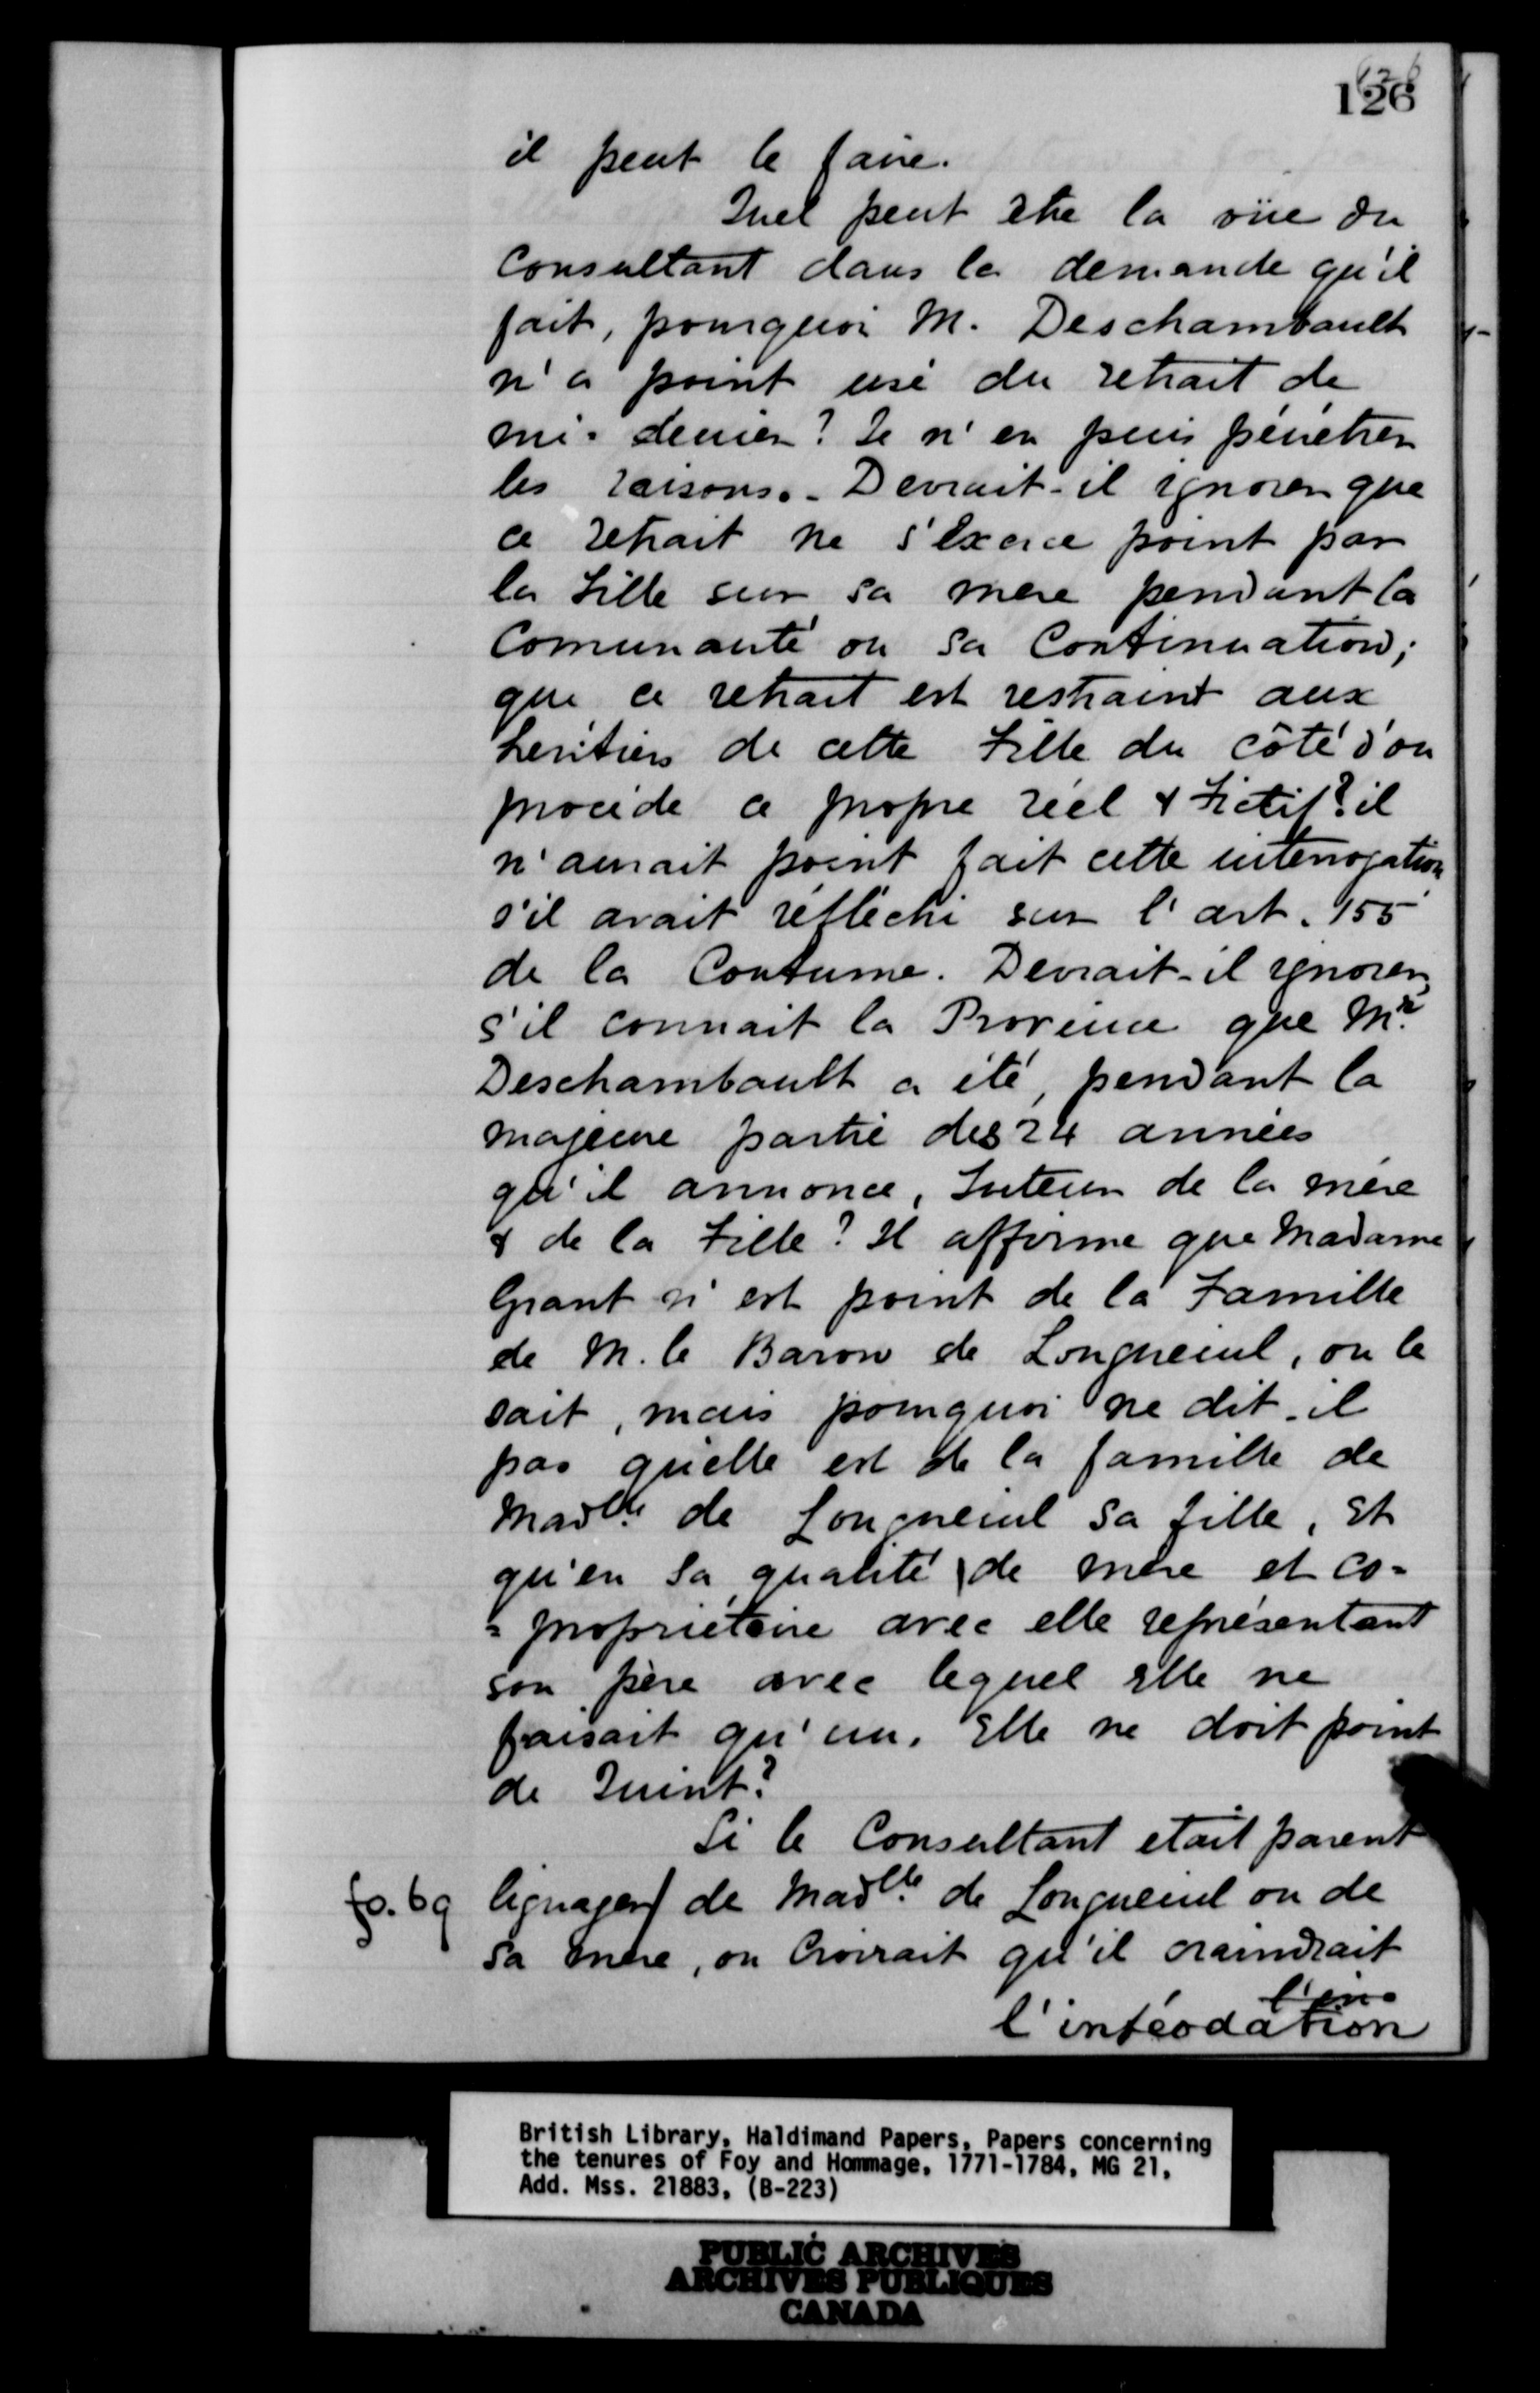 126
126
il peut le faire.
Quel peut être la vüe du
Consultant dans la demande qu'il
fait, pourquoi M. Deschambault
n'a point usé du retrait de
mi-denier? Je n'en puis pénétrer
les raisons.- Devrait-il ignorer que
ce retrait ne s'Exerce point par
la Fille sur sa mere pendant la
Communauté ou sa Continuation;
que ce retrait est restraint aux
heritiers de cette Fille du côté d'ou
procéde ce propre réel & Fictif? il
n'aurait point fait cette interrogation
s'il avait réfléchi sur l'art. 155
de la Coutume. Devrait-il ignorer,
s'il connait la Province que Mr.
Deschambault a été, pendant la
majeure partie des 24 années
qu'il annonce, Tuteur de la mére
& de la Fille? Il afforme que Madame
Grant n'est point de la Famille
de M. le Baron de Longueuil, on le
sait, mais pourquoi ne dit-il
pas qu'elle est de la famille de
Madlle. de Longueuil sa fille, Et
qu'en sa qualité de mere et co-
= propriétaire avec elle représentant
son père avec lequel Elle ne
faisait qu'un. Elle ne doit point
de Quint?
Si le Consultant etait parent
fo. 69 lignager/ de Madlle. de Longueuil ou de
sa mere, on Croirait qu'il craindrait
l'in-
l'inféodation
British Library, Haldimand Papers, Papers concerning
the tenures of Foy and Hommage, 1771-1784, MG 21,
Add. Mss. 21883, (B-223)
PUBLIC ARCHIVES
ARCHIVES PUBLIQUES
CANADA